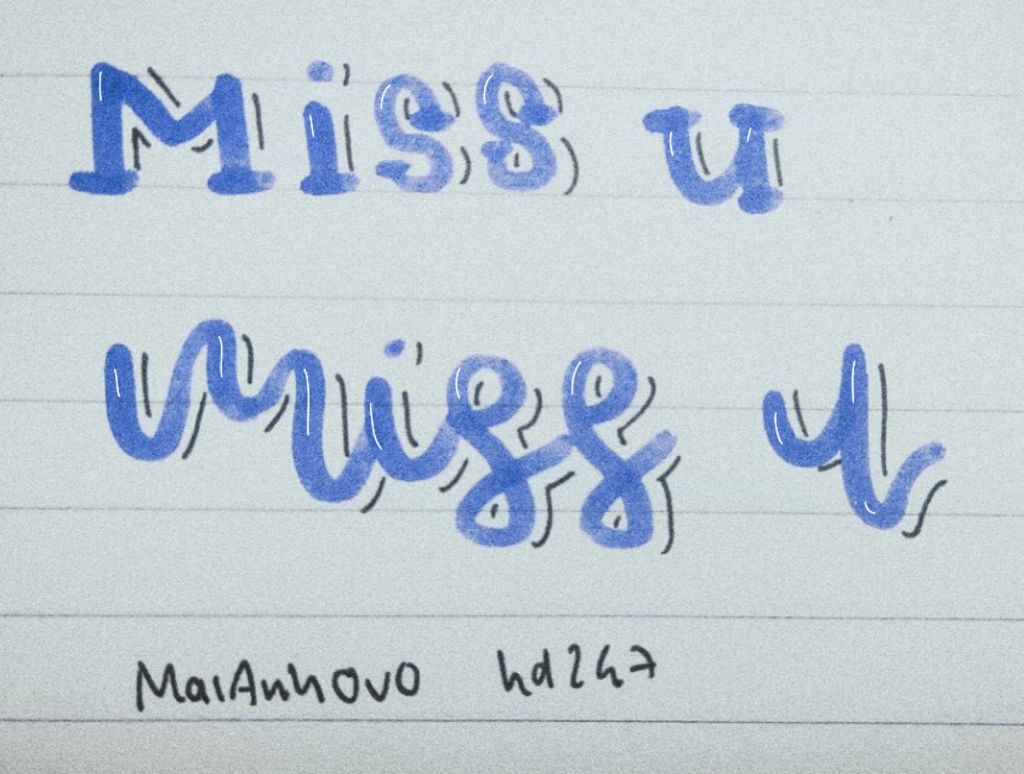 Miss u
Miss u
MaiAnhOvO hd247